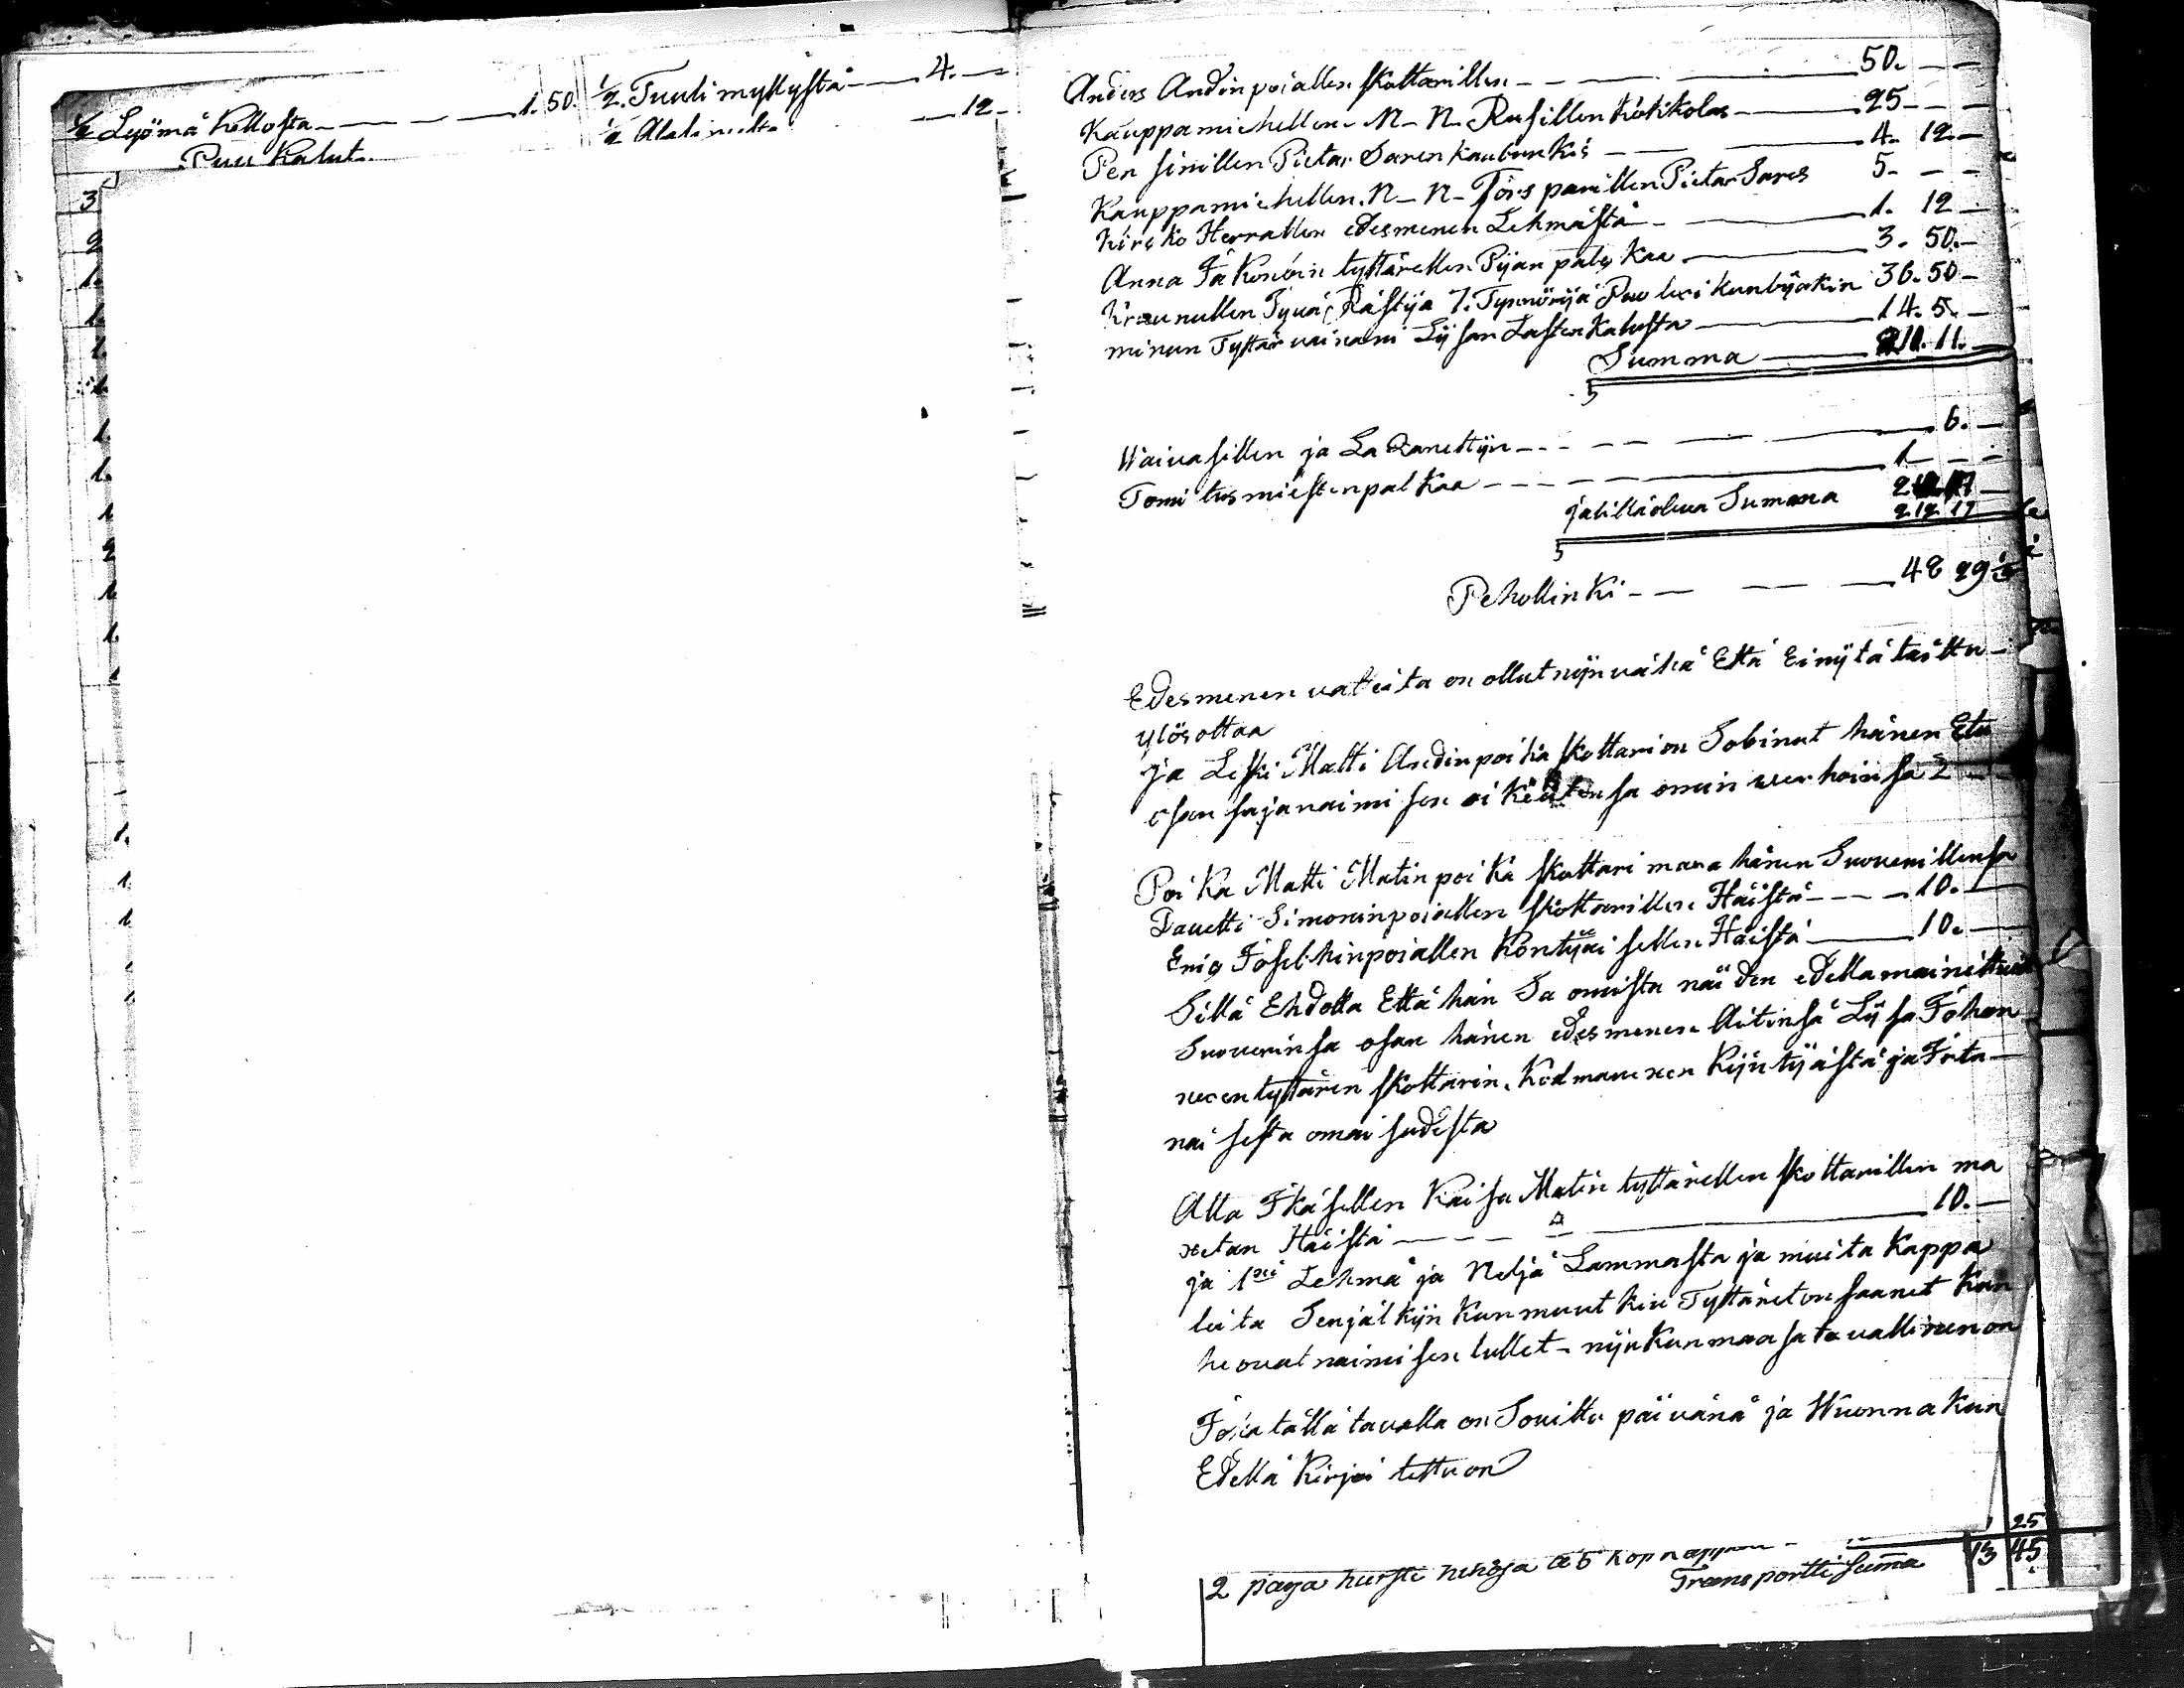 1/2 Lyömä Kellosta 1. 50.
Puu Kalut.
1/2. Tuuli myllystä 4.
1/2 12
3
2
1.
1.
1.
1.
1.
1.
1
2
1
1.
1
1.
1.
1
1
1
Anders Andinpoiallen Skottarillen 50.
Kauppamiehellen N. N. Rusillen Kokkolas 25
Pensinillen Pietar Saren kaubunkis 4. 12.
Kauppamiehellen. N. N. Törspanillen Pietar Sares 5.
Kirkko Herrallen edesmenen Lehmästä 1. 12
Anna Jakonóin tyttärellen Pijan palkkaa 3. 50.
Kraunullen Jyuä Rästijä 7. Tynnörijä 36. 50
minun Tyttär vainani Lijsan Lasten Kalusta 14. 5.
Summa 211. 11.
Waivasillen ja La Zarettijn 6.
Toimitusmiestenpalkkaa 1
jälilläoleva Summa 212 17
212 17
Pehollinki 48 29 1/2
Edesmenen vateita on ollut nijn vähä Että Ei nijtä taittu
ylösottaa
ja Leski Matti Andinpoika Skottari on Sobinut hänen Etu
osansa ja naimisen oikeutensa omin werhoinsa 2
Poika Matti Matinpoika Skottari maxa hänen Suourillensa
Davetti Simoninpoiallen Skottarillen Häistä 10.
Eric Josephinpoiallen Köntijäisellen Häistä 10.
Sillä Ehdolla Että hän Sa omista näiden edellamainittuin
Suourinsa osan hänen edesmenen Äitinsä Lijsa Johan
nexen tyttären Skottarin. Kodmanexen Kijntijästä ja Irta
naisesta omaisudesta
Alla Ikäsellen Kaisa Matin tyttärellen Skottarillen ma
xetan Häistä 10.
ja 1xi Lehmä ja Neljä Lammasta ja muita Kappa
leita Senjälkijn Kun muutkin Tyttäret on saanet Kun
he ovat naimisen tullet nijnkun maasa tavallinen on
Joka tällä tavalla on Sovittu päivänä ja Wuonna Kun
Edellä Kirjoitettu on
25
2 paya hursti nekosja a 5 kop
Transportti Suma 13 45